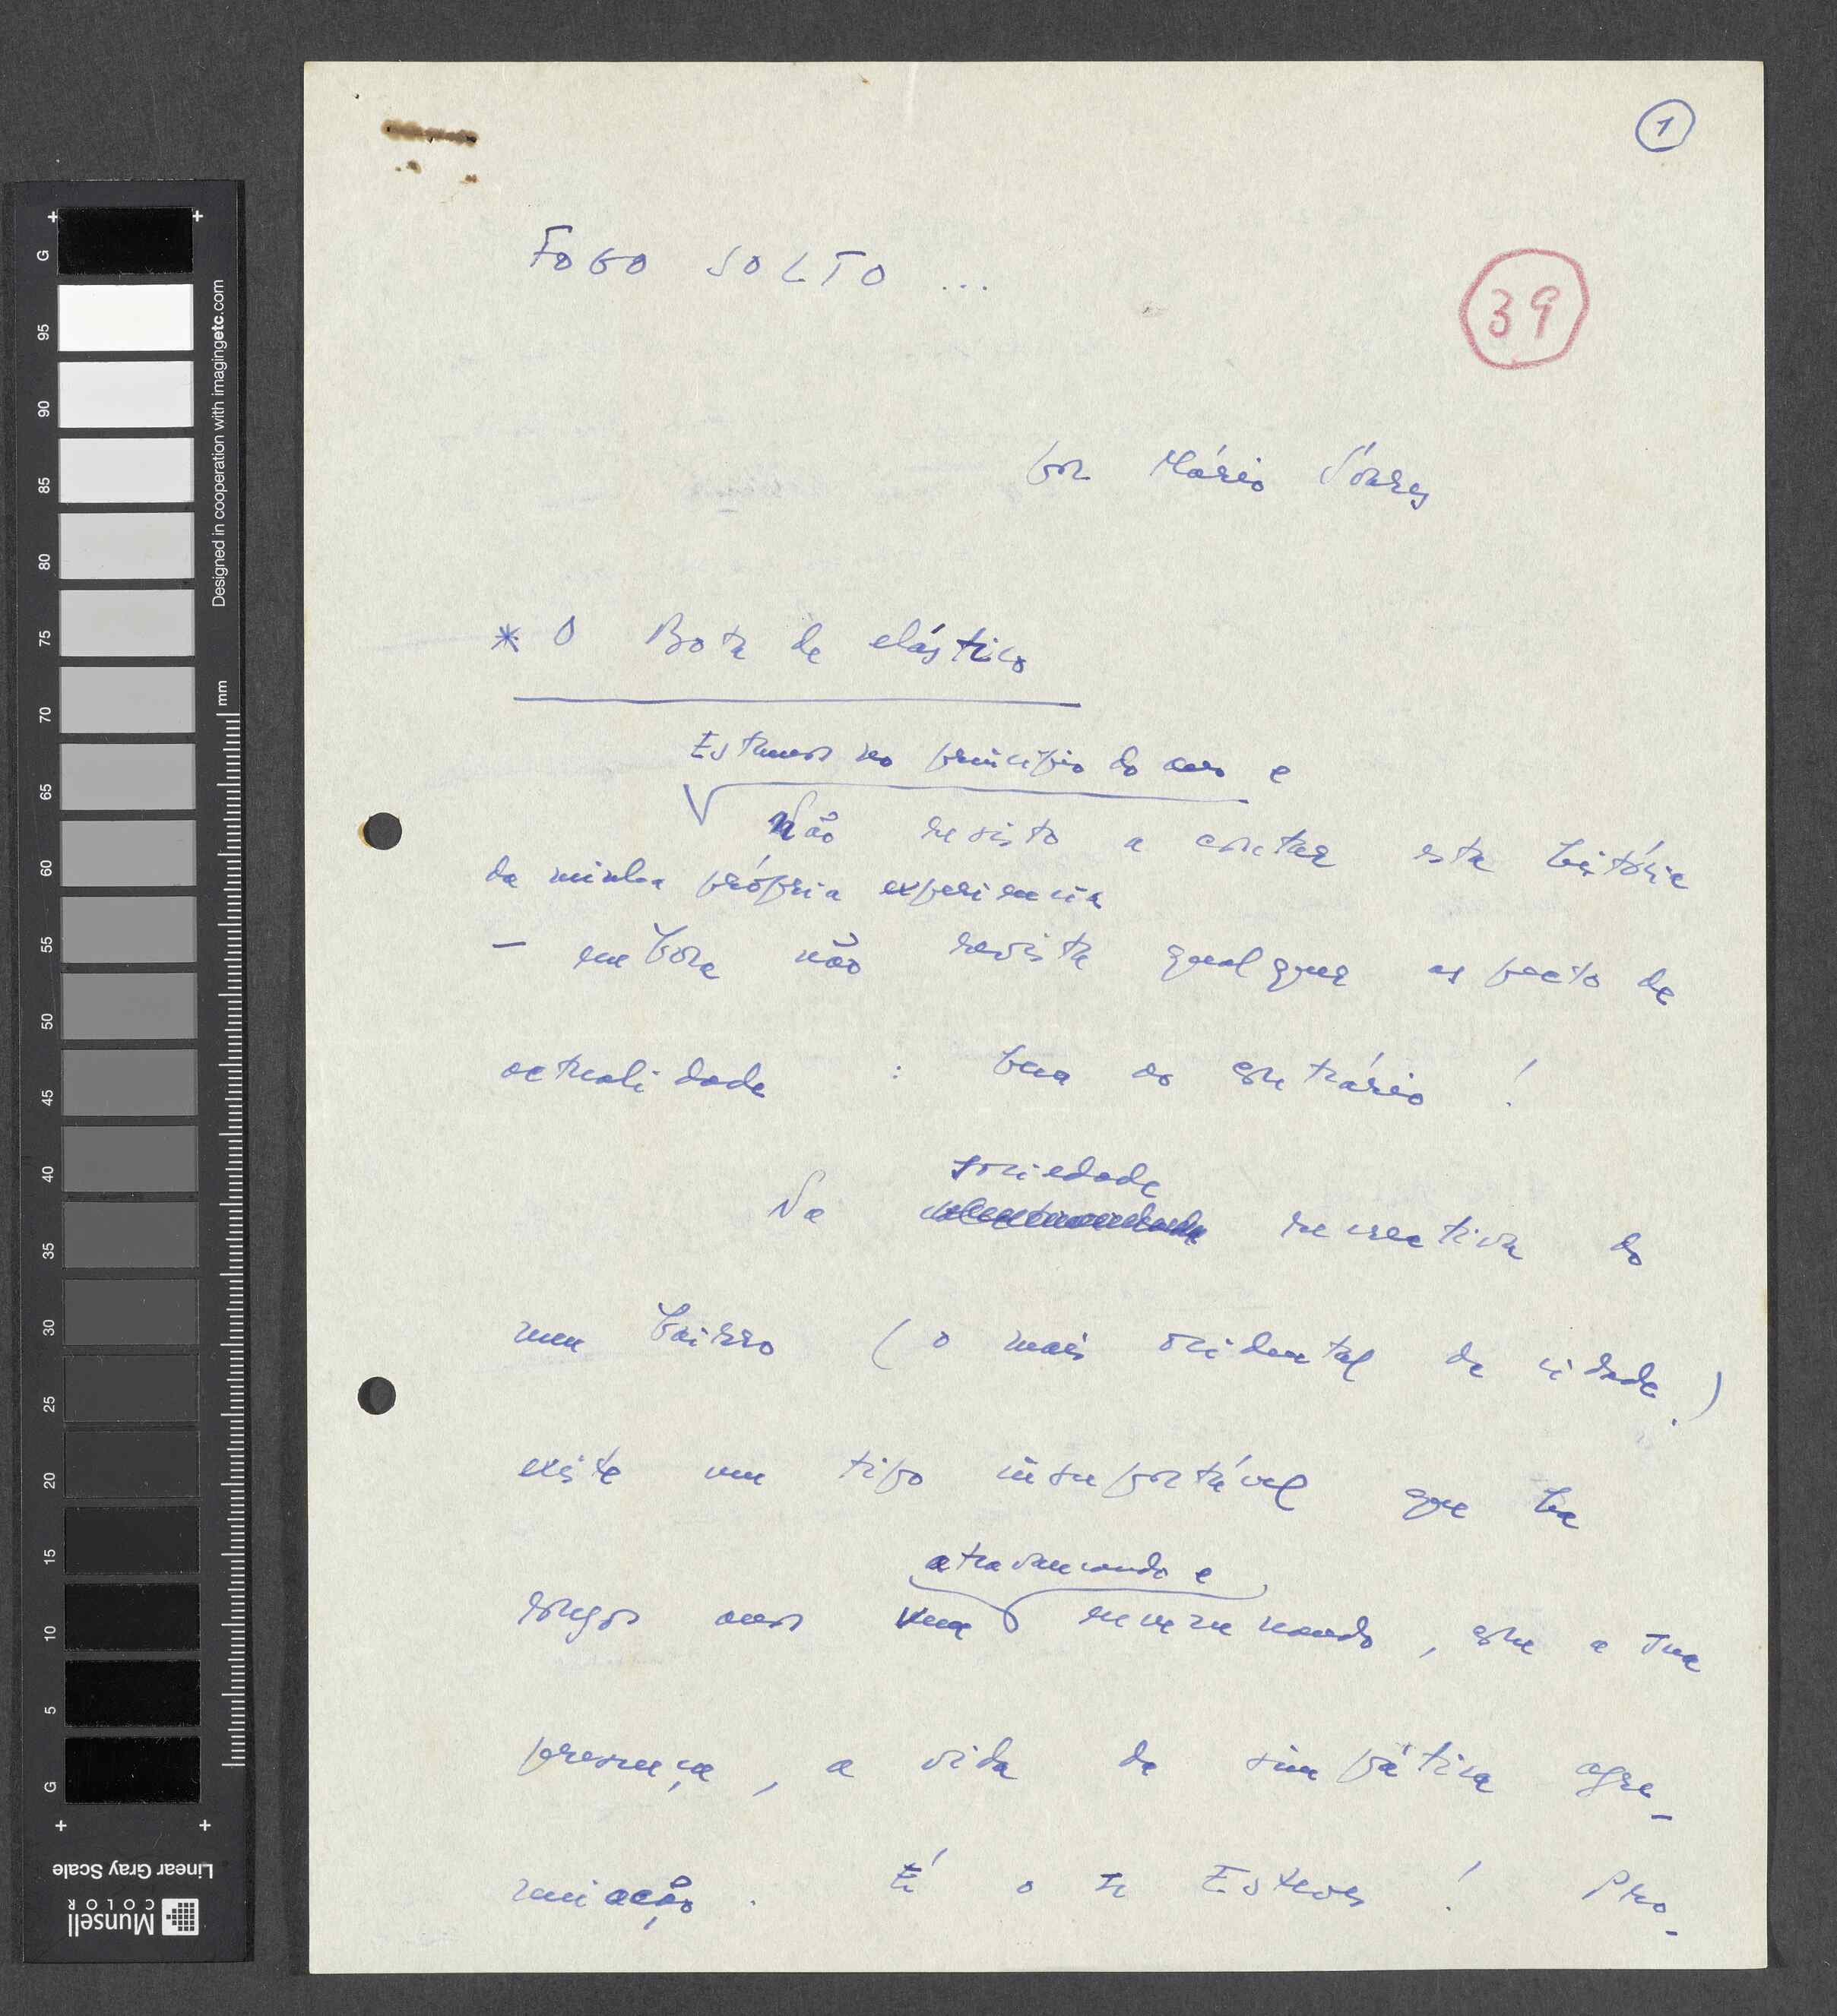 1
FOGO SOLTO ...
39
por Mário Soares
* O Bota de elástico
Estamos no princípio do ano e
Não resisto a contar esta história
da minha própria experiência
— embora não revista qualquer aspecto de
actualidade : bem ao contrário !
sociedade
Na recreativa do
meu bairro (o mais ocidental da cidade.)
existe um tipo insuportável que há
atravancando e
longos anos vem envenenando, com a sua
presença, a vida da simpática agre-
miação. É o sr Esteves ! Pro-
G
95
90
85
80
75
70
65
60
55
50
45
40
35
30
25
20
15
10
5
G
mm
Designed in cooperation with imagingetc.com
Linear Gray Scale
Munsell
COLOR